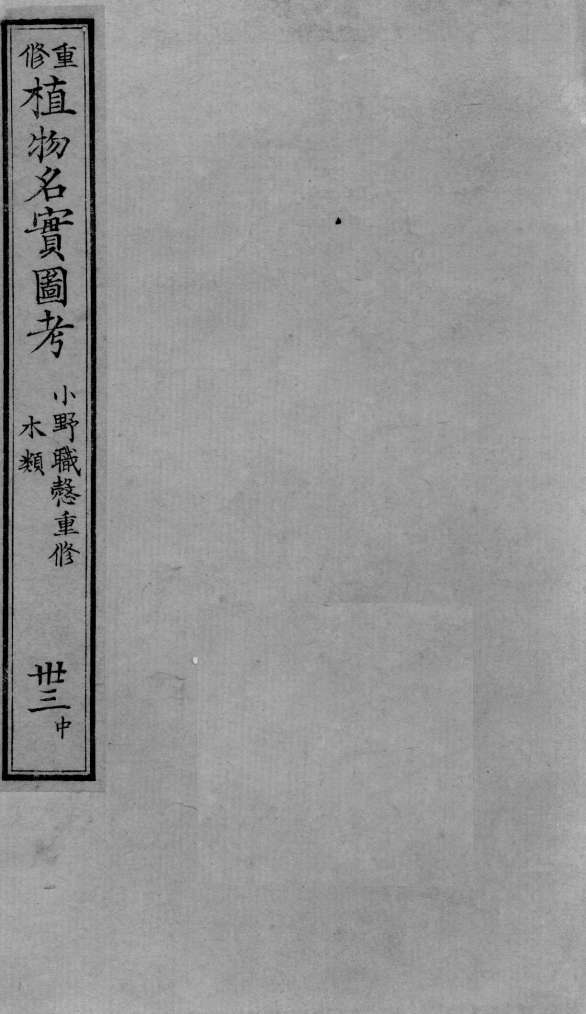 重修
植物名實圖考
小野職愨重修
木類
丗三
中